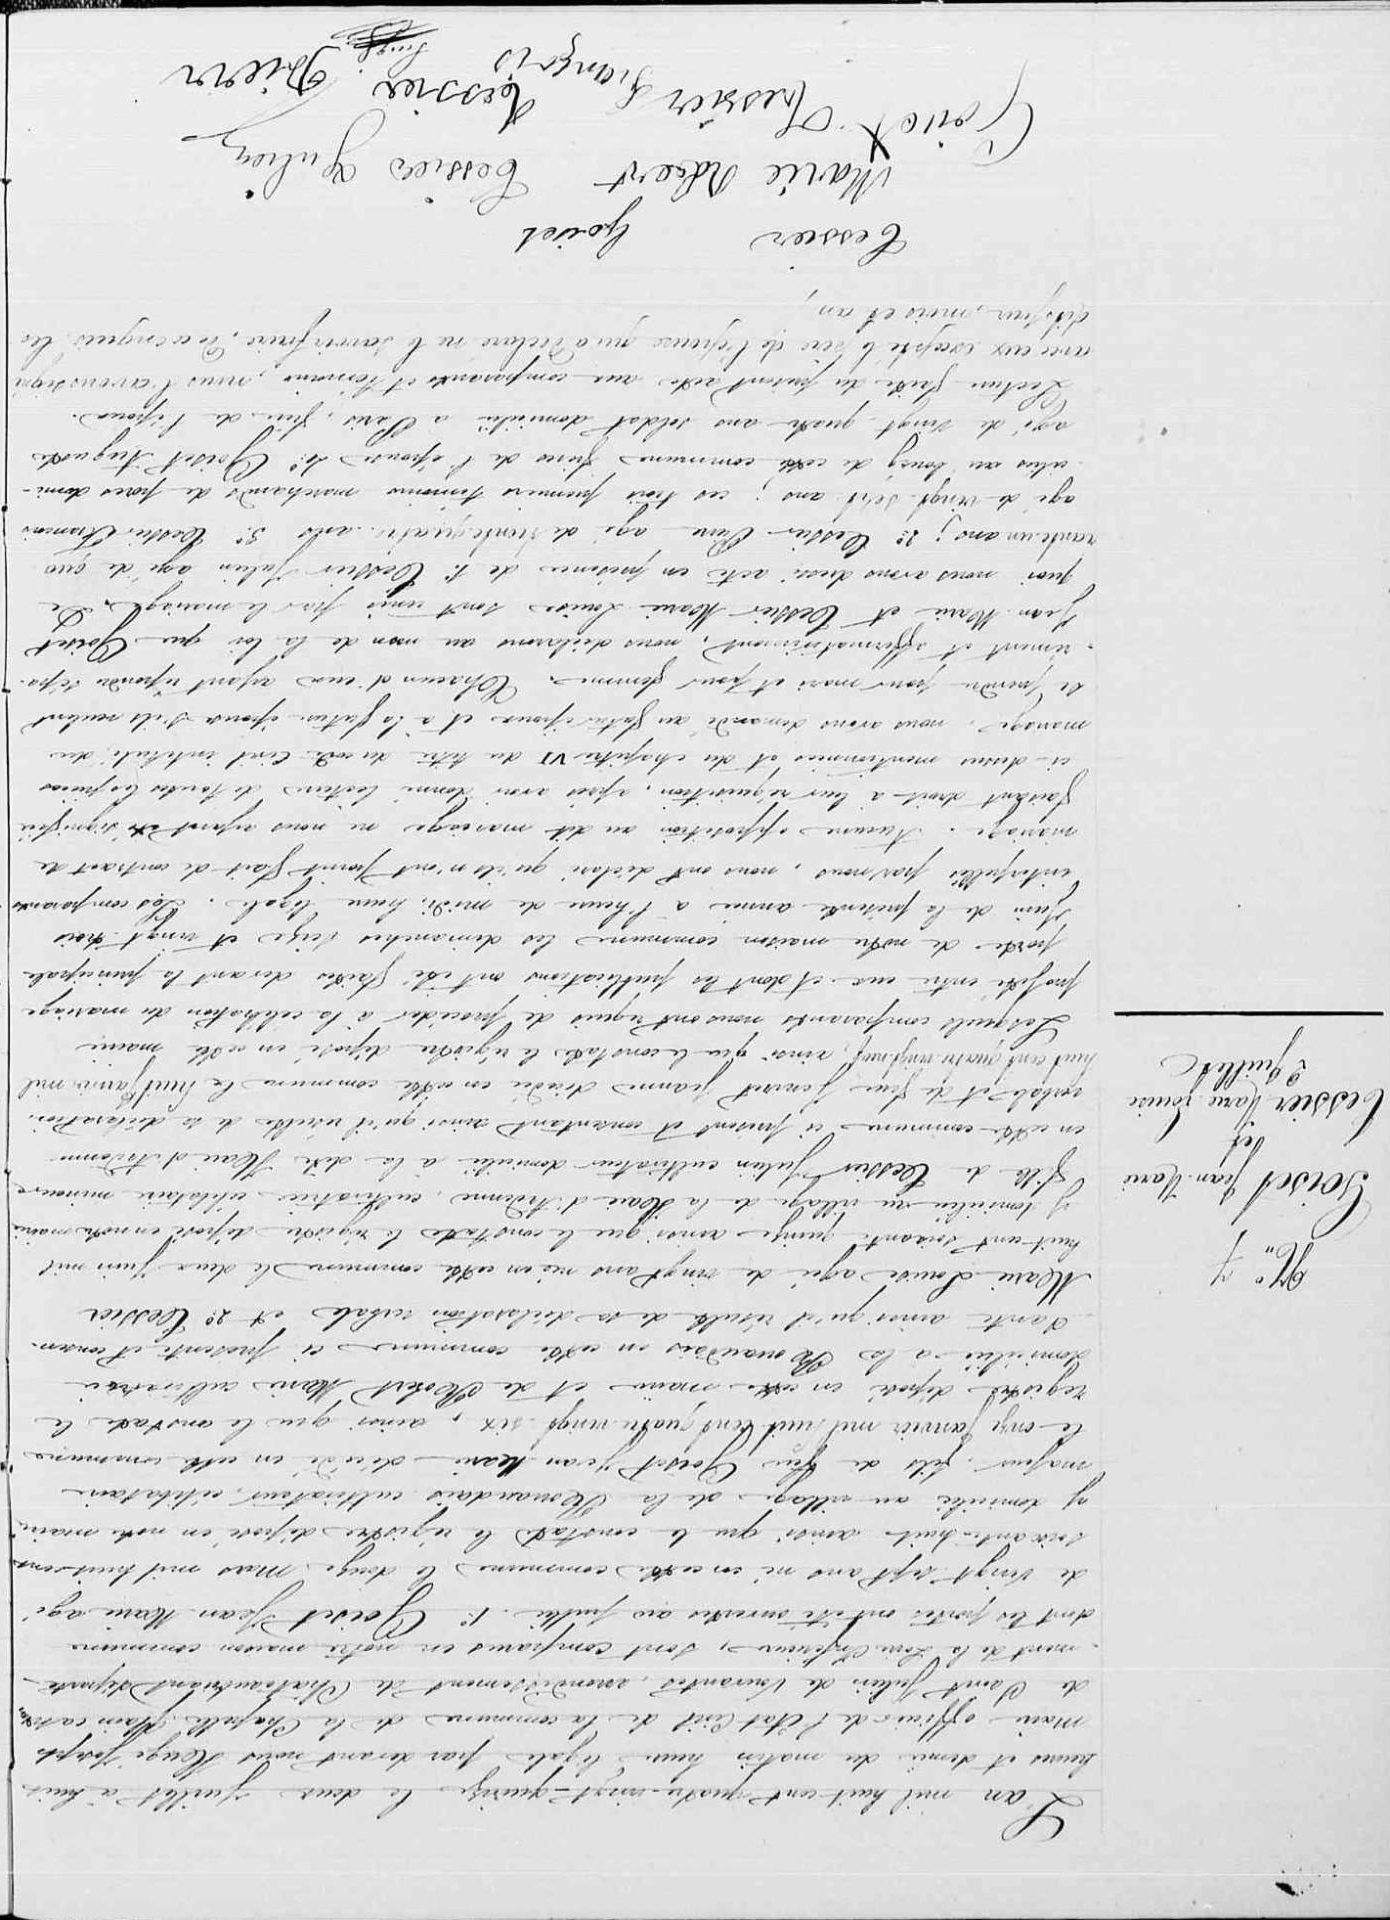 N° 7
Goiset Jean Marie
et
Tessier Marie Louise
2 Juillet
L'an mil huit cent quatre-vingt-quinze le deux Juillet à huit
heures et demie du matin heure légale par devant nous Joseph
Maire officier de l'Etat Civil de la commune de la Chapelle Glain canton
de Saint Julien de Vouvantes, arrondissement de Châteaubriant départe-
-ment de la Loire Inférieure, sont comparus en notre maison commune
dont les portes ont été ouvertes au public. 1° Goiset Jean Marie agé
de vingt sept ans né en cette commune le douze Mars mil huit cent
soixante-huit ainsi que le constate le registre déposé en notre mairie
y domicilié au village de la cultivateur, célibataire
majeur, fils de feu Goiset Jean Marie décédé en cette commune
le onze janvier mil huit cent quatre vingt six, ainsi que le constate le
registre déposé en cette mairie et de Marie cultivatrice
domiciliée à la en cette commune ci présente et consen-
-tante ainsi qu'il résulte de sa déclaration verbale et 2° Tessier
Marie Louise agée de vingt ans née en cette commune le deux Juin mil
huit cent soixante quinze ainsi que le constate le registre déposé en notre mairie
y domiciliée au village de la Haie d'Ardenne, cultivatrice, célibataire mineure
fille de Tessier Julien cultivateur domicilié à la dite Haie d'Ardenne
en cette commune ci présent et consentant ainsi qu'il résulte de sa déclaration
verbale et de feue Jeanne décédée en cette commune le huit mil
huit cent quatre vingt neuf, ainsi que le constate le registre déposé en cette mairie
Lesquels comparants nous ont requis de procéder à la célébration du mariage
projeté entre eux et dont les publications ont été faites devant la principale
porte de notre maison commune les dimanches seize et vingt trois
Juin de la présente année à l'heure de midi, heure légale. Les comparants
interpellés par nous, nous ont déclaré qu'ils n'ont point fait de contract de
mariage. Aucune opposition au dit mariage ne nous ayant été signifiée
faisant droit à leur réquisition, après avoir donné lecture de toutes les pièces
ci-dessus mentionnées et du chapitre VI du titre du code Civil intitulé du
mariage, nous avons demandé au futur époux et à la future épouse s'ils veulent
se prendre pour mari et pour femme. Chacun d'eux ayant répondu sépa-
-rément et affirmativement, nous déclarons au nom de la loi que Goiset
Jean Marie et Tessier Marie Louise sont unis par le mariage. De
quoi nous avons dressé acte en présence de 1° Tessier Julien agé de qua
rante un ans; 2° Tessier Pierre agé de trente quatre ans 3° Tessier François
agé de vingt sept ans; ces trois premiers témoins marchands de porcs domi-
-ciliés au bourg de cette commune frères de l'épouse 4° Goiset Auguste
agé de vingt quatre ans soldat domicilié à Paris, frère de l'époux.
Lecture faite du présent acte aux comparants et témoins, nous l'avons signé
avec eux excepté le père de l'épouse qui a déclaré ne le savoir faire, de ce enquis les
dits jour, mois et an,
Tessier Goiset
Marie Tessier Julien
Goiset Tessier François Tessier Pierre